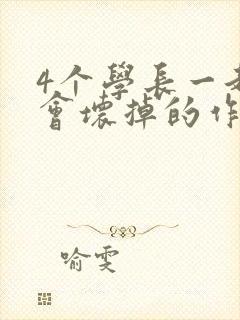 4个學長一
會壞掉的作
喻雯